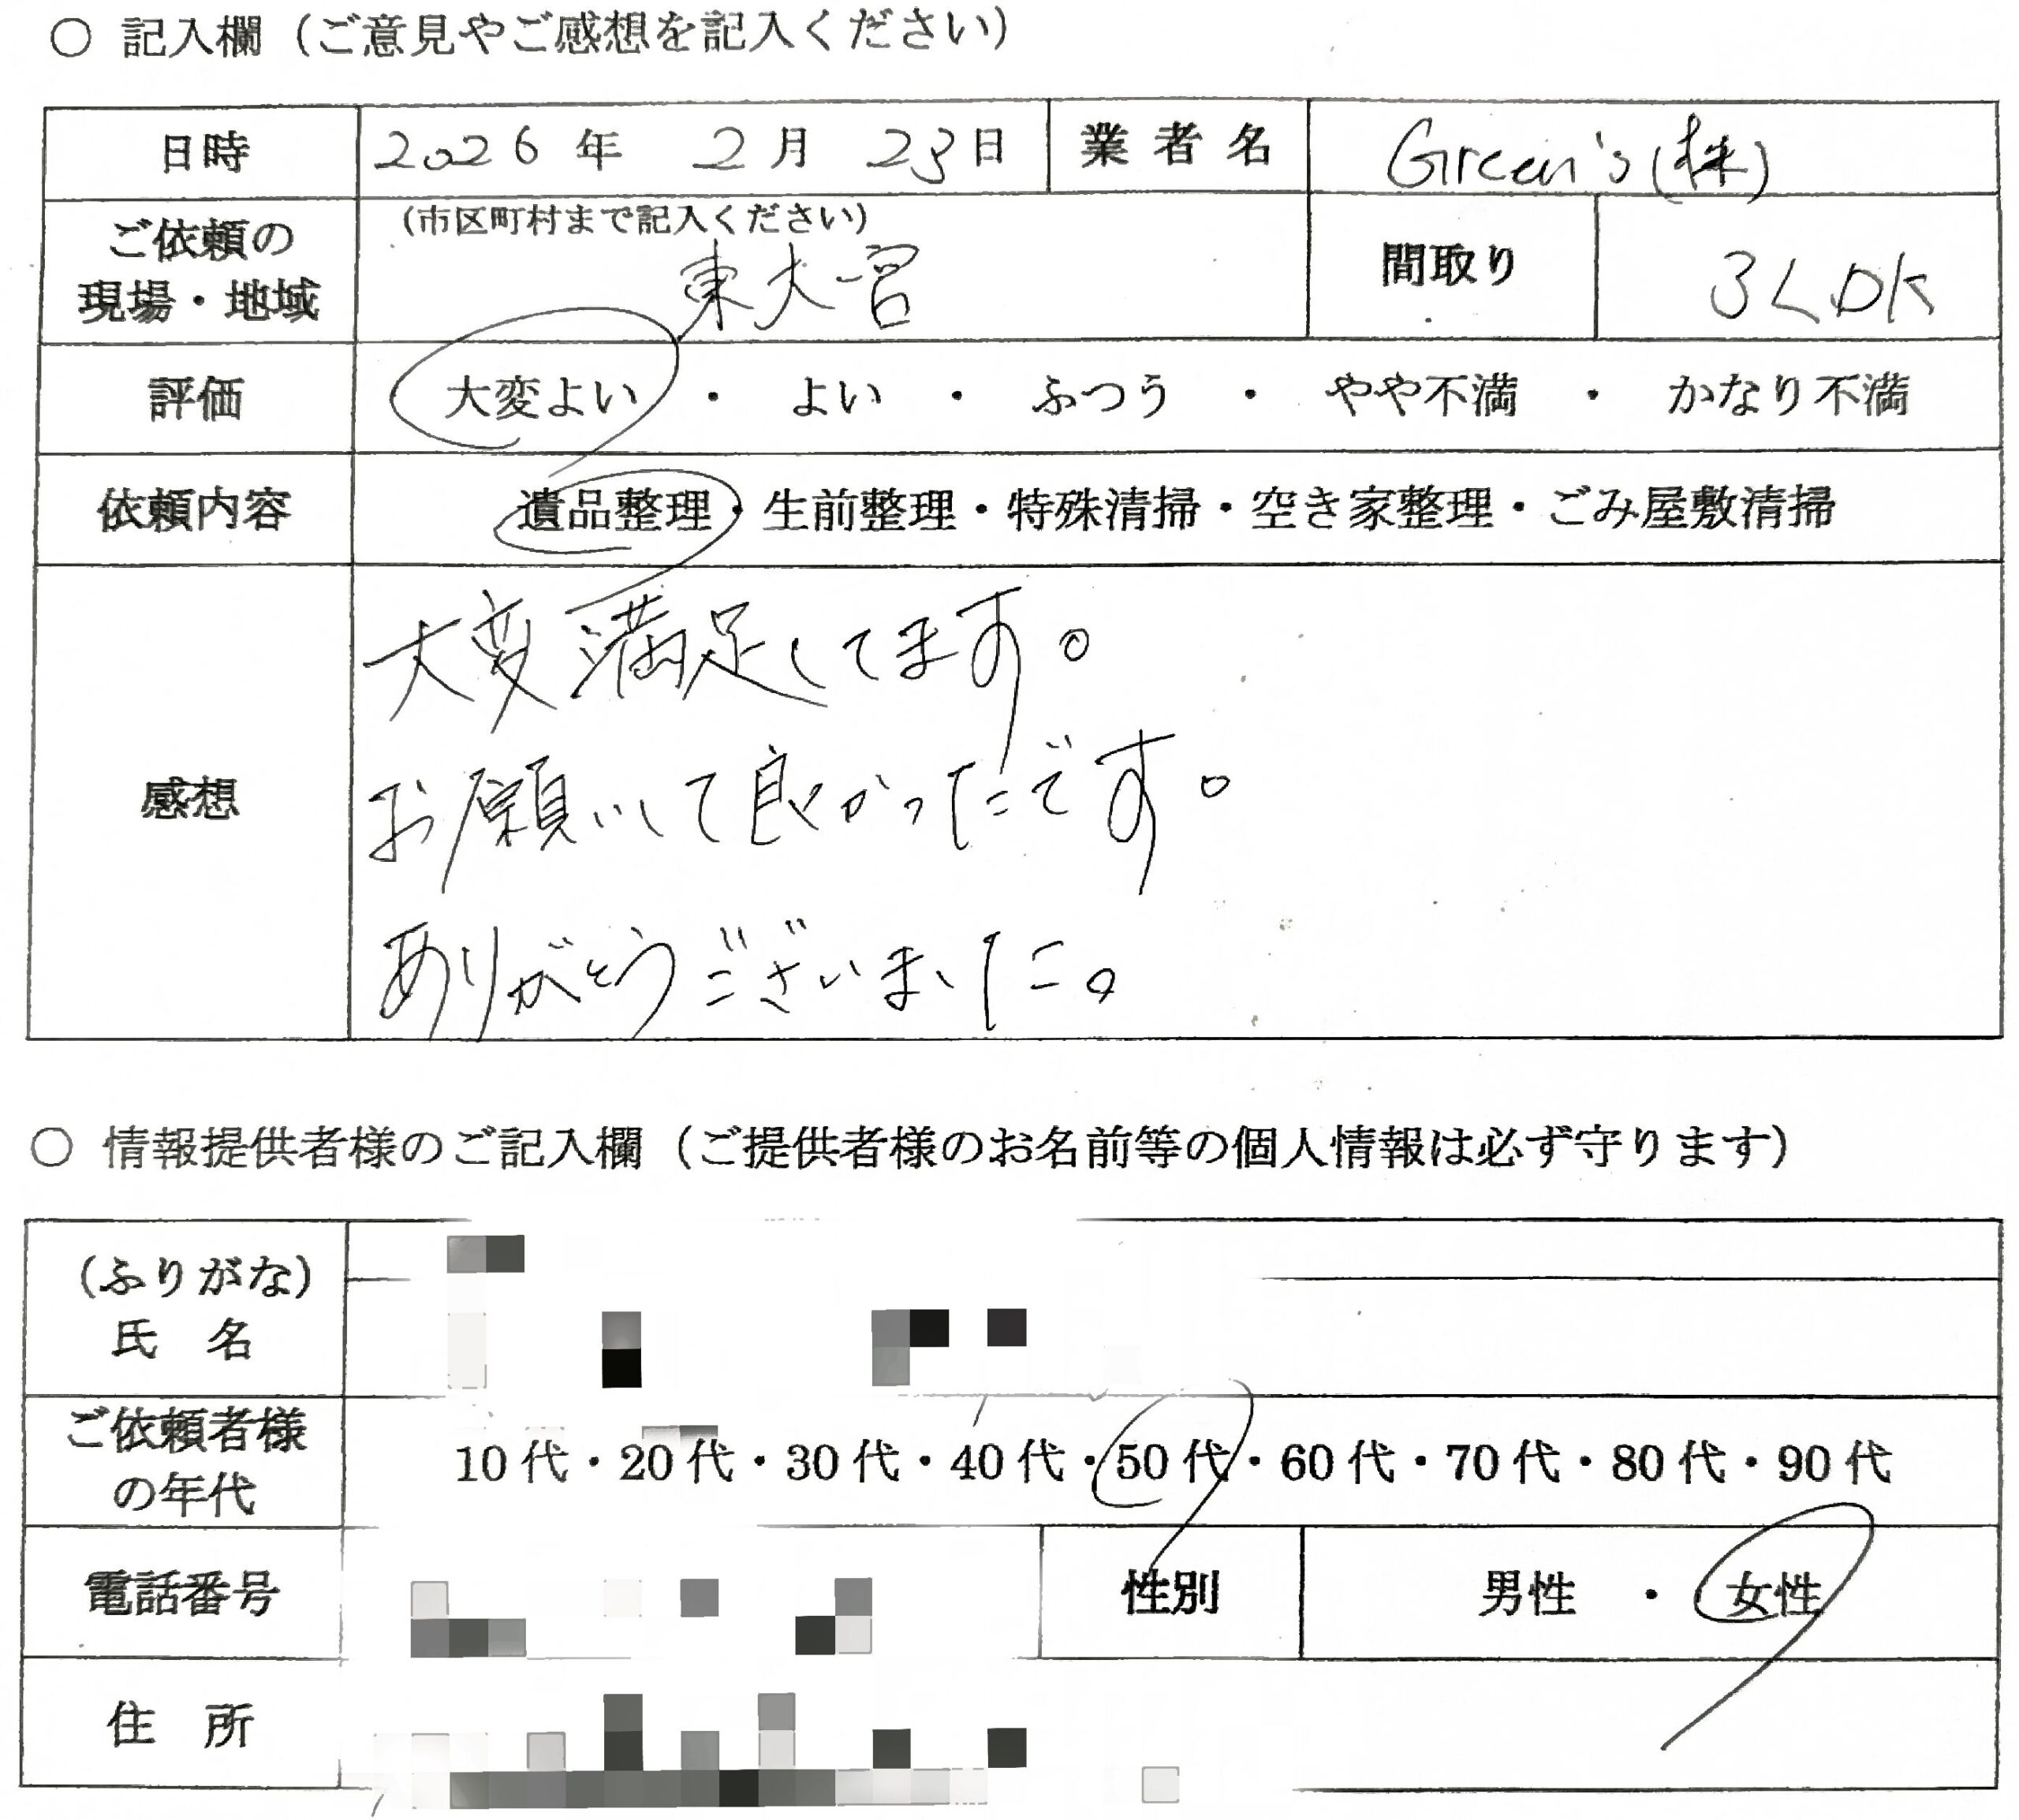 ○ 記入欄（ご意見やご感想を記入ください）
日時 2026年 2月 23日 業者名 Green's(株)
ご依頼の現場・地域 （市区町村まで記入ください） 東大宮 間取り 3LDK
評価 大変よい ・ よい ・ ふつう ・ やや不満 ・ かなり不満
依頼内容 遺品整理・生前整理・特殊清掃・空き家整理・ごみ屋敷清掃
感想
大変満足してます。
お願いして良かったです。
ありがとうございました。
○ 情報提供者様のご記入欄（ご提供者様のお名前等の個人情報は必ず守ります）
（ふりがな）
氏 名
ご依頼者様の年代 10代・20代・30代・40代・50代・60代・70代・80代・90代
電話番号 性別 男性 ・ 女性
住 所